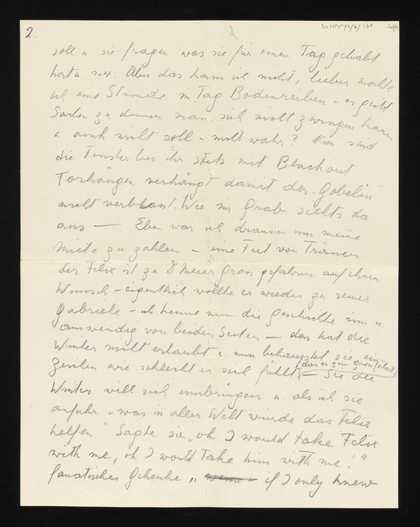 2.
soll u sie fragen was sie für einen Tag gehabt
hat u so. Aber das kann ich nicht, lieber wollte
ich eine Stunde im Tag Bodenreiben – es giebt
Sachen zu denen man sich nicht zwingen kann
u auch nicht soll – nicht wahr? Nun sind
die Fenster bei ihr stets mit Blackout
Vorhängen verhängt damit der Gobelin
nicht Wie im Grab siehts da
aus — Eben war ich drinnen um meine
Miete zu zahlen – eine Flut von Tränen
der Felix ist zu gefahren auf ihren
Wunsch – eigentlich wollte er wieder zu seiner
Gabriele – ich kenne nun die Geschichte in u
auswendig von beiden Seiten — das hat die
Winter nicht erlaubt u nun behauptet sie ein
Zeichen wie schlecht er sich fühlt – Sie die
Winter will sich umbringen u als ich sie
anfuhr – was in aller Welt würde das Felix
helfen" Sagte sie „oh I would take Felix
with me, oh I would take him with me!"
Schenke „ if I only knew